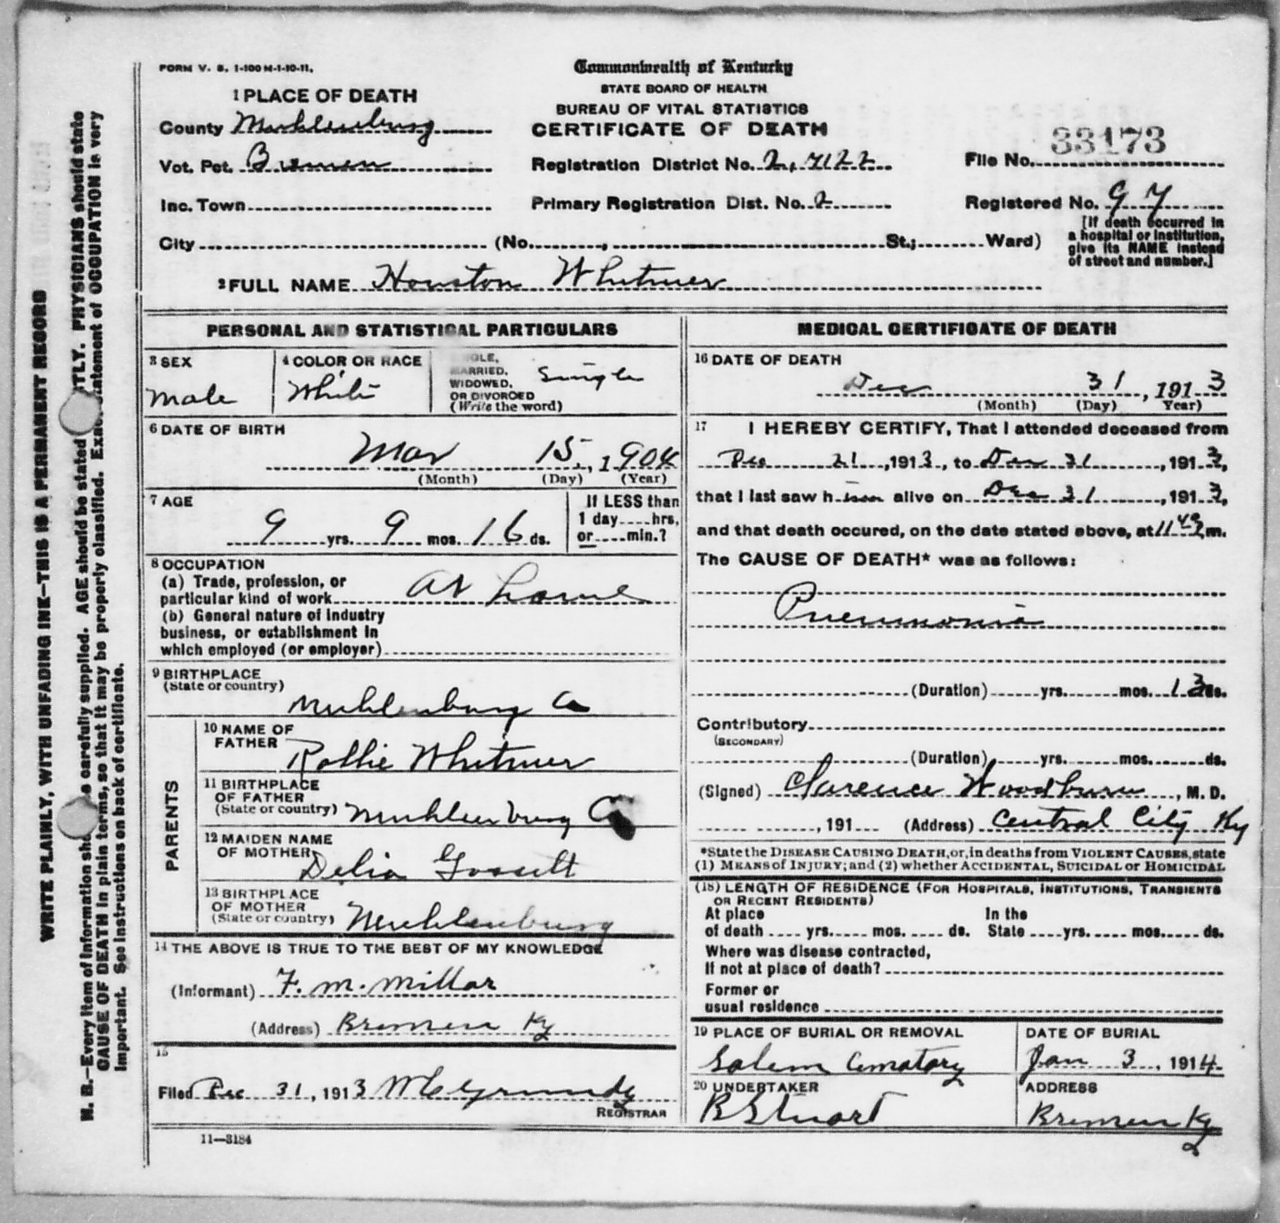 FORM V. S. 1-100 M-1-10-11.
Commonwealth of Kentucky
STATE BOARD OF HEALTH
BUREAU OF VITAL STATISTICS
CERTIFICATE OF DEATH
1 PLACE OF DEATH
County Muhlenburg
Vot. Pct. Bremen
Inc. Town
Registration District No. 2, 7122
Primary Registration Dist. No. 2
33173
File No.
Registered No. 97
[If death occurred in
a hospital or institution,
give its NAME instead
of street and number.]
City (No. , St.; Ward)
2 FULL NAME Houston Whitmer
PERSONAL AND STATISTICAL PARTICULARS
3 SEX
Male
4 COLOR OR RACE
White
MARRIED,
WIDOWED,
OR DIVORCED
(Write the word)
Single
6 DATE OF BIRTH
Mar 15, 1904
(Month) (Day) (Year)
7 AGE
9 yrs. 9 mos. 16 ds.
If LESS than
1 day hrs,
or min.?
8 OCCUPATION
(a) Trade, profession, or
particular kind of work At home
(b) General nature of industry
business, or establishment in
which employed (or employer)
9 BIRTHPLACE
(State or country)
Muhlenburg Co
PARENTS
10 NAME OF
FATHER
Rollie Whitmer
11 BIRTHPLACE
OF FATHER
(State or country) Muhlenburg Co
12 MAIDEN NAME
OF MOTHER
Delia Gossett
13 BIRTHPLACE
OF MOTHER
(State or country) Muhlenburg
14 THE ABOVE IS TRUE TO THE BEST OF MY KNOWLEDGE
(Informant) F. M. Millar
(Address) Bremen Ky
15
Filed Dec 31, 1913 W C Grundy
REGISTRAR
11—3184
MEDICAL CERTIFICATE OF DEATH
16 DATE OF DEATH
Dec 31, 1913
(Month) (Day) Year)
17 I HEREBY CERTIFY, That I attended deceased from
Dec 21, 1913, to Dec 31, 1913,
that I last saw h im alive on Dec 31, 1913,
and that death occured, on the date stated above, at 11 m.
The CAUSE OF DEATH* was as follows:
Pneumonia
(Duration) yrs. mos. 13 ds.
Contributory
(SECONDARY)
(Duration) yrs. mos. ds.
(Signed) Clarence Woodburn, M. D.
, 191 (Address) Central City Ky
*State the DISEASE CAUSING DEATH, or, in deaths from VIOLENT CAUSES, state
(1) MEANS of INJURY; and (2) whether ACCIDENTAL, SUICIDAL or HOMICIDAL
(18) LENGTH OF RESIDENCE (FOR HOSPITALS, INSTITUTIONS, TRANSIENTS
OR RECENT RESIDENTS)
At place In the
of death yrs. mos. ds. State yrs. mos. ds.
Where was disease contracted,
If not at place of death?
Former or
usual residence
19 PLACE OF BURIAL OR REMOVAL
Salem Cematary
DATE OF BURIAL
Jan 3, 1914
20 UNDERTAKER
B Stuart
ADDRESS
Bremen Ky
2
WRITE PLAINLY, WITH UNFADING INK—THIS IS A PERMANENT RECORD
N. B.—Every item of information carefully supplied. AGE should be stated PHYSICIANS should state
CAUSE OF DEATH in plain terms, so that it may be properly classified. statement of OCCUPATION is very
important. See instructions on back of certificate.